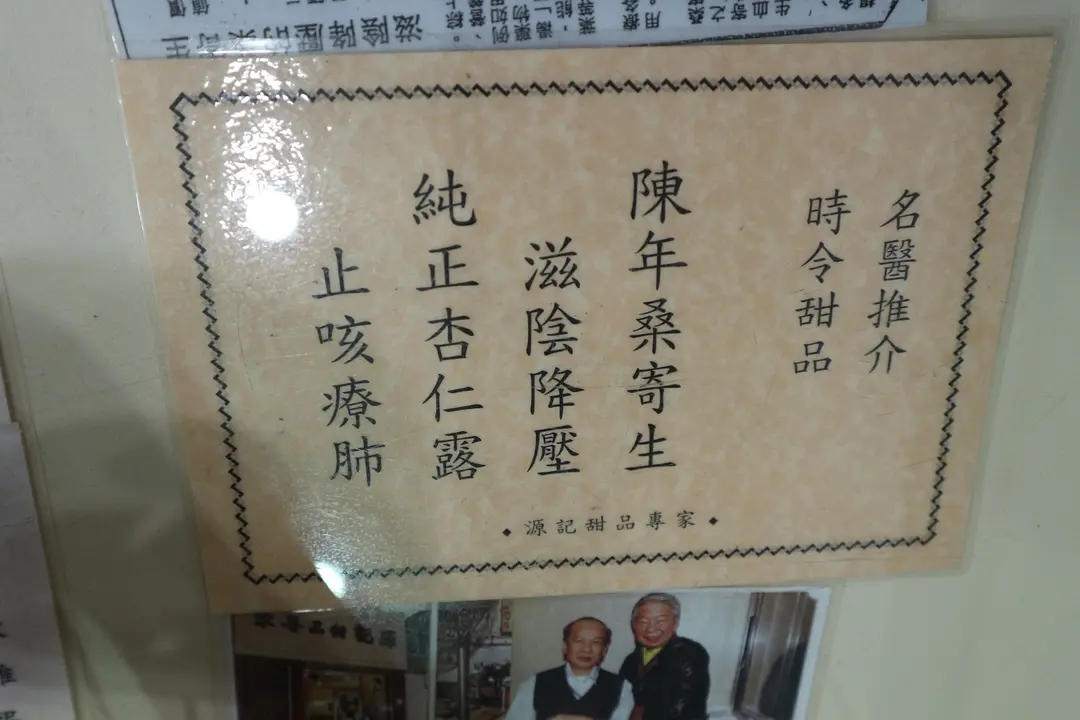 名醫推介
時令甜品
陳年桑寄生
滋陰降壓
純正杏仁露
止咳療肺
源記甜品專家
滋陰降壓的桑寄生